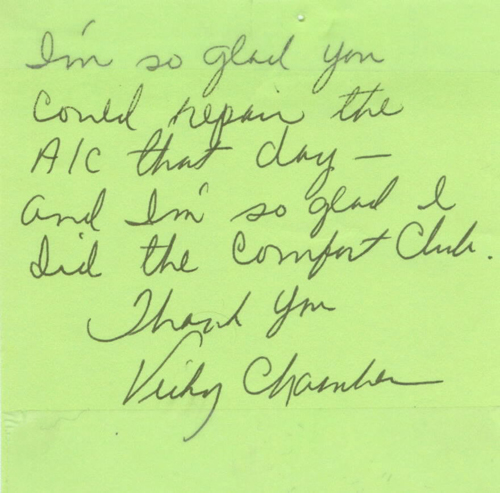 I'm so glad you
could repair the
A/C that day —
and I'm so glad I
did the Comfort Club.
Thank you
Vicky Chamber